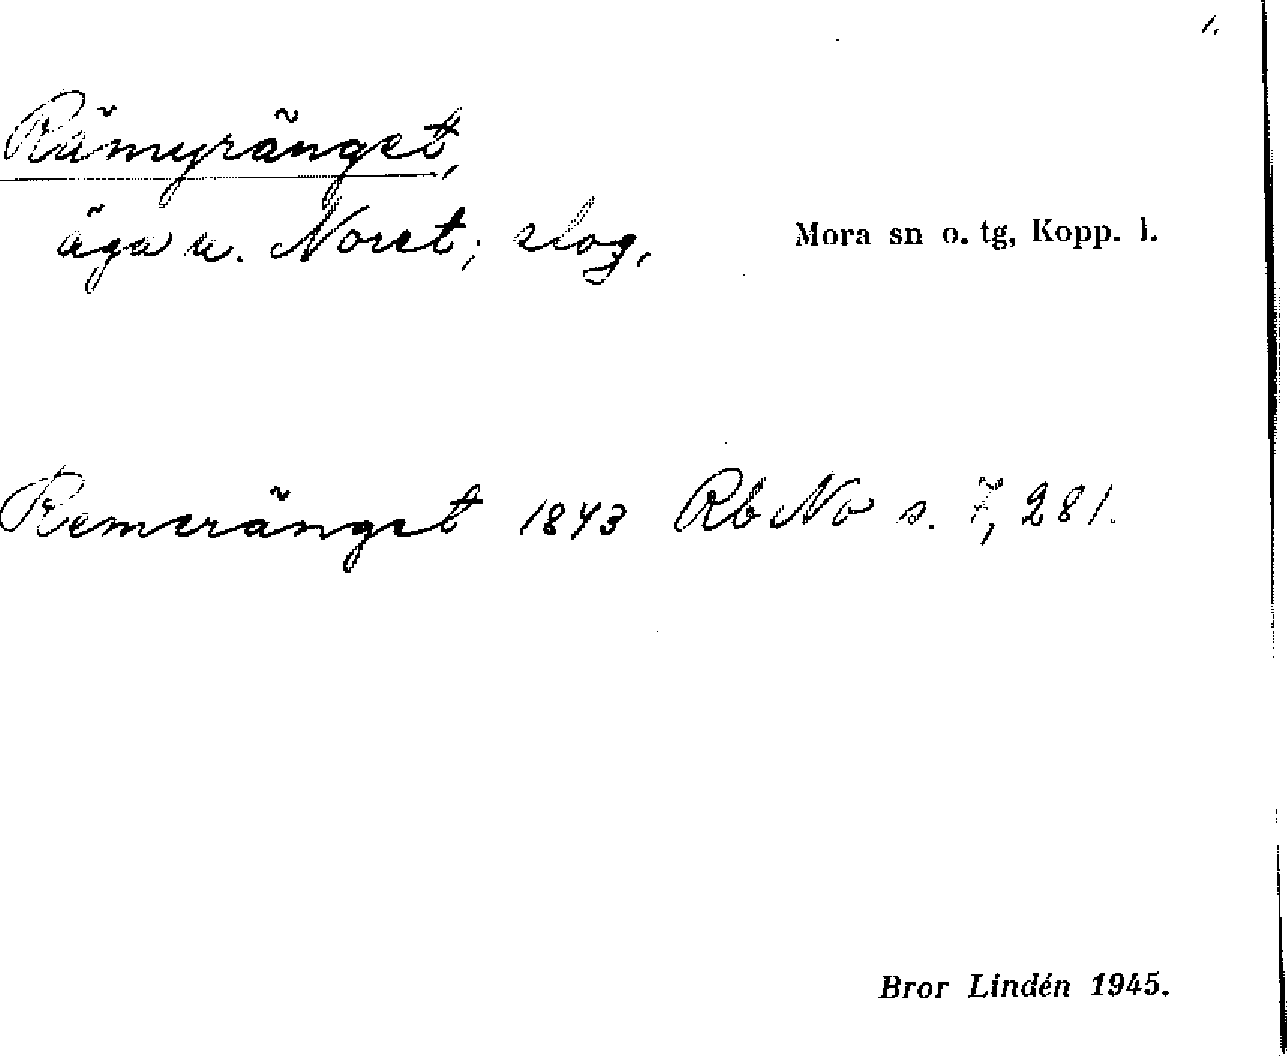 1.
Rämyränget,
äga u. Noret; slog,
Mora sn o. tg, Kopp. l.
Remeränget 1843 Rb No s. 7, 281.
Bror Lindén 1945.